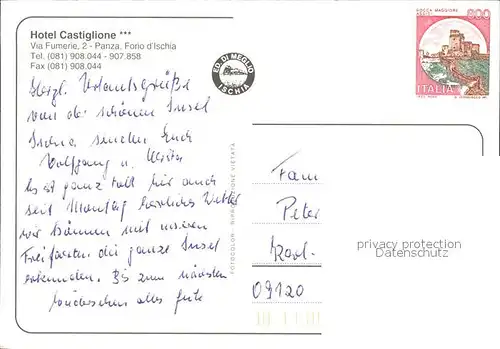 Hotel Castiglione ***
Via Fumerie, 2 - Panza, Forio d'Ischia
Tel. (081) 908.044 - 907.858
Fax (081) 908.044
ED. DI MEGLIO
ISCHIA
ROCCA MAGGIORE
ASSISI
800
ITALIA
Herzl. Urlaubsgrüße
von der schönen Insel
Ischia senden Euch
Wolfgang u.
Es ist ganz toll hier auch
seit Montag herrliches Wetter
wir können mit unseren
die ganze Insel
erkunden. Bis zum nächsten
alles gute
FOTOCOLOR - RIPRODUZIONE VIETATA
Fam
Peter
09120
privacy protection
Datenschutz